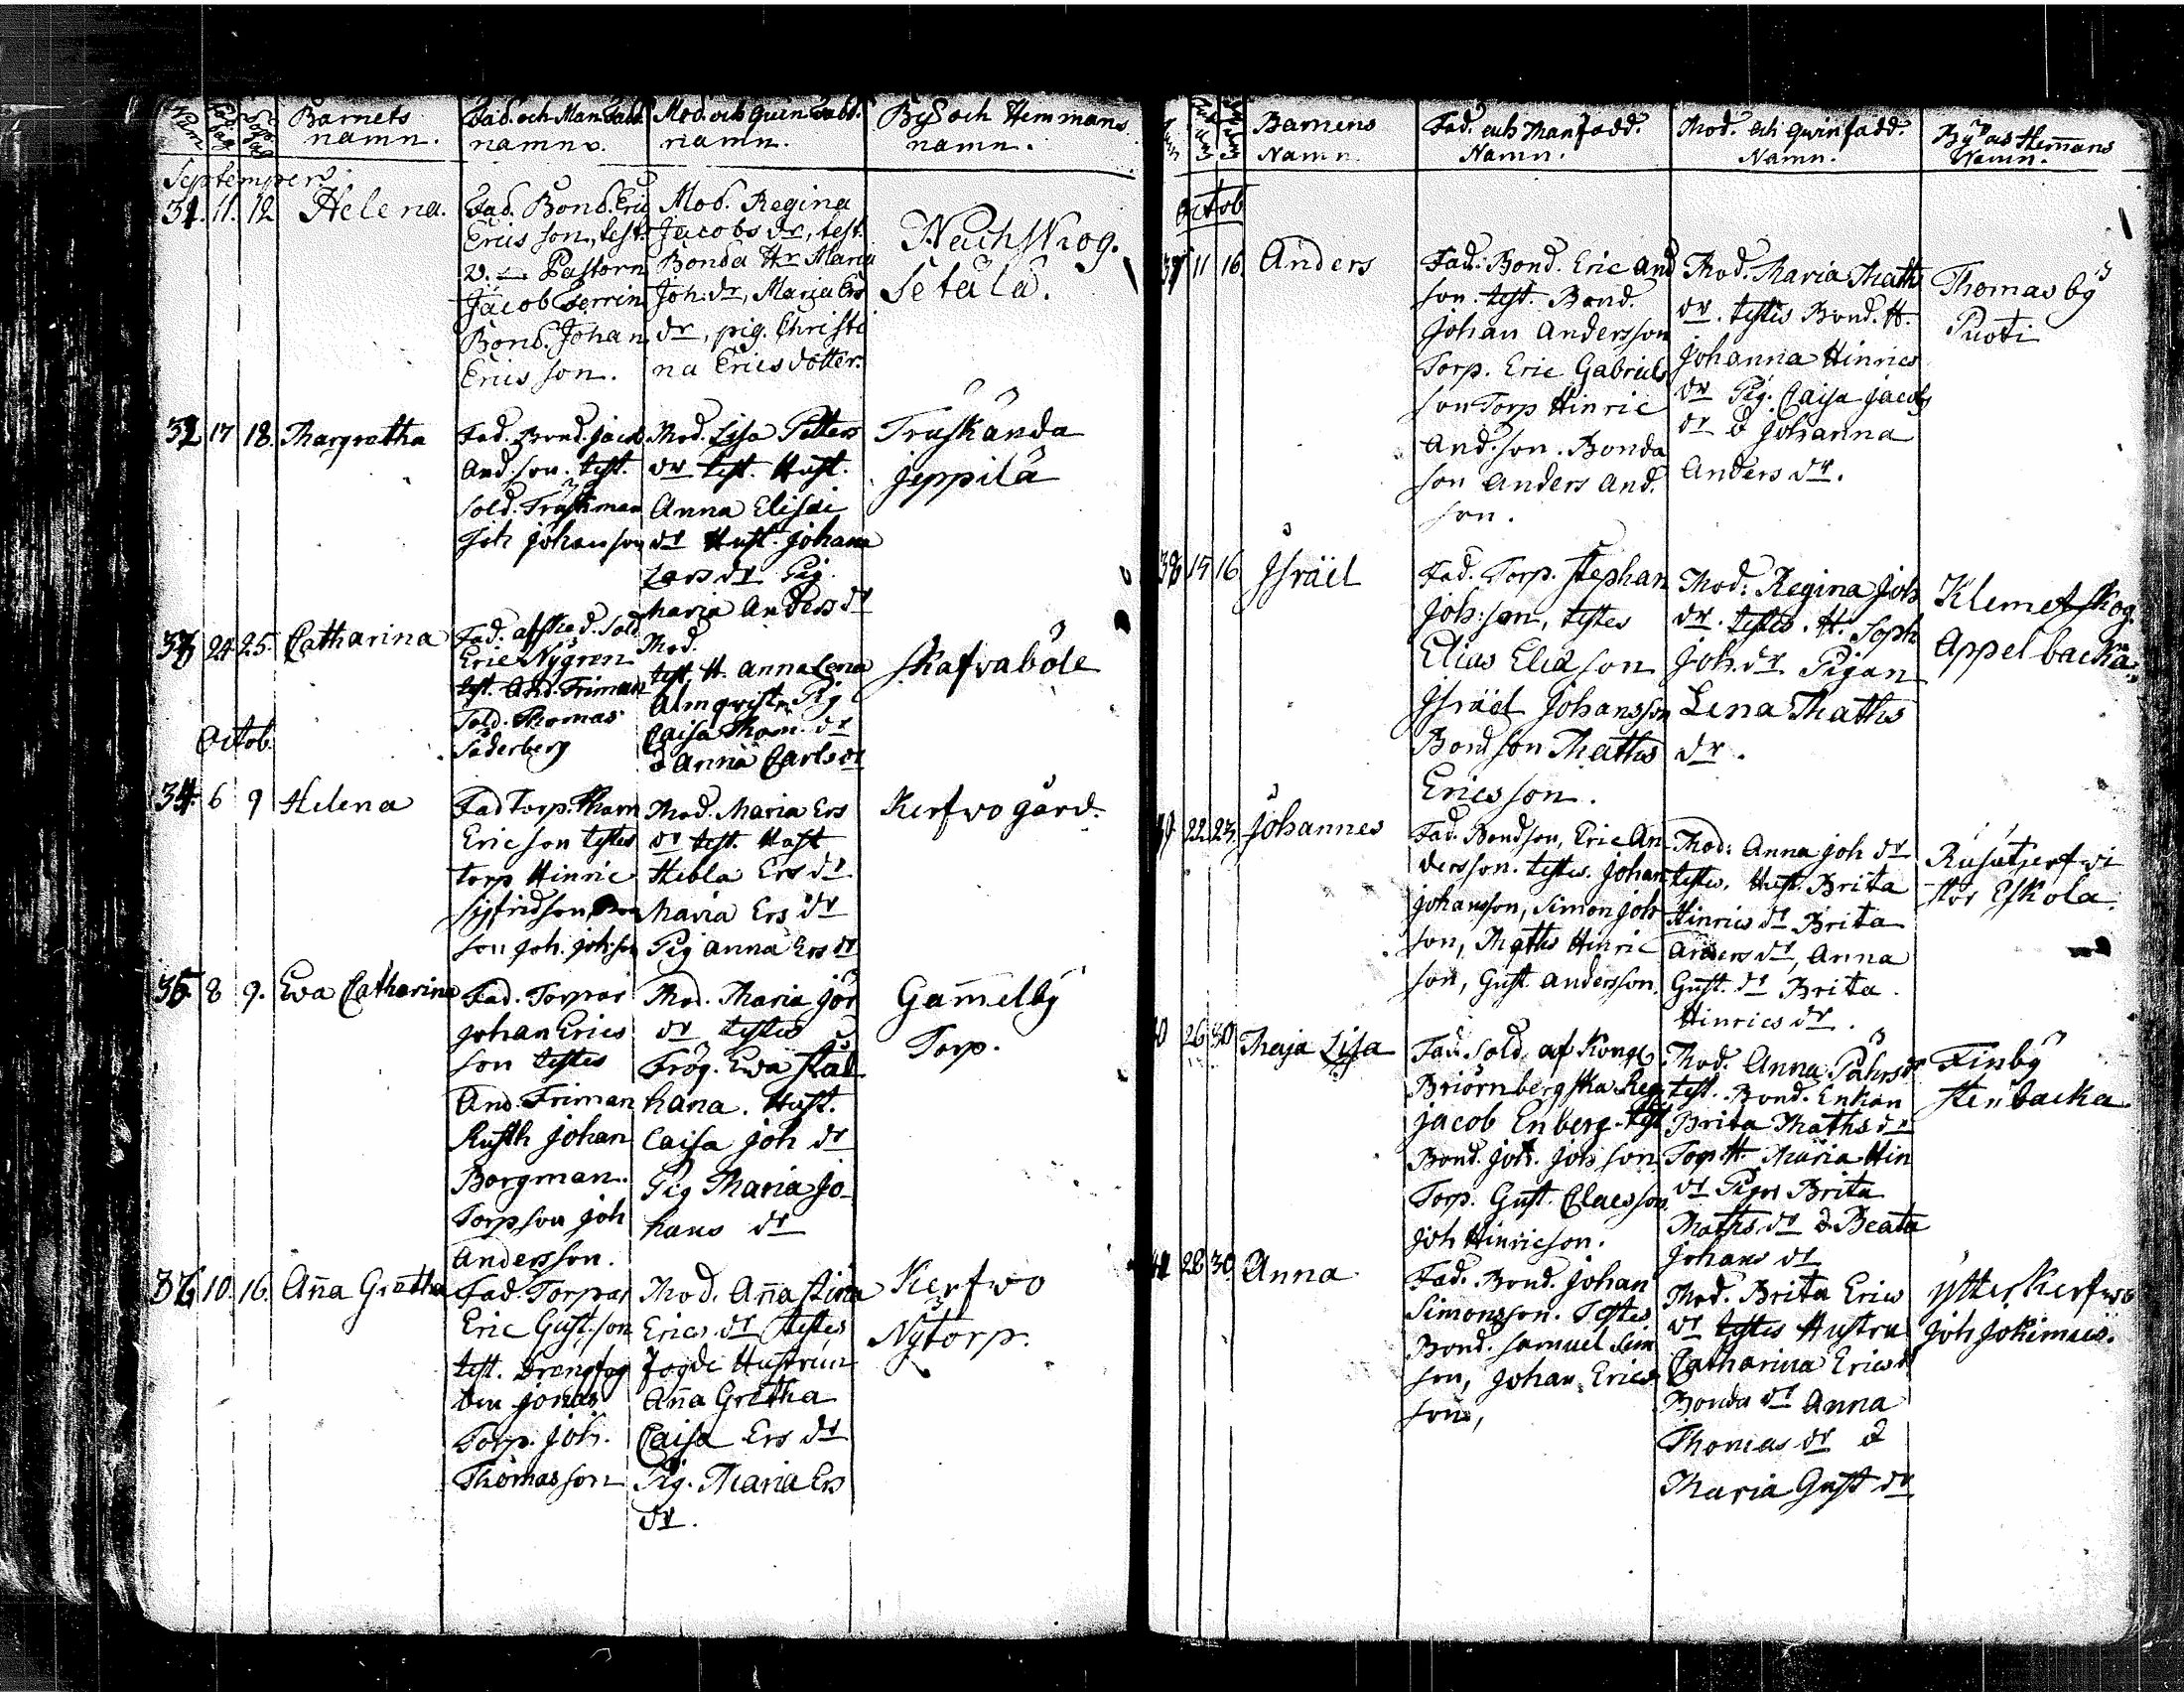 Barnets namn.
Fad. och Man Fadd. namn.
Mod. och Quin Fadd. namn.
By och Hemmans namn.
September
31. 11. 12. Helena.
Fad. Bond. Eric
Ericsson, test.
v. Pastorn
Jacob
Bond. Johan
Ericsson.
Mod. Regina
Jacobs dr, test.
Bonda Hr Maria
Joh: dr, Maria Ers
dr, pig. Christi
na Ericsdotter.
Nachskog.
Setälä.
32 17 18. Margretha
Fad. Bond. Jacob
And. son. test.
Sold. Träskman
Joh Johansson
Mod. Lisa Petters
dr test. Hust.
Anna Elisæi
dr Hust. Johana
Lars dr Pig
Maria Anders dr
Träskända
Jeppilä
33 24. 25. Catharina
Fad. afsked. Sold
Eric Nygren
test. And. Friman
Sold. Thomas
Söderberg
Mod.
test. H. Anna Lena
Almqvist Pig
Caisa Thom. dr
& Anna Carls dr
Skafvaböle
Octob.
34. 6 9 Helena
Fad Torp. Tham
Ericson testes
torp Hinric
Sigfridson
son Joh. Joh:son
Mod. Maria Ers
dr test. Hust
Hebla Ers dr
Maria Ers dr
Pig Anna Ers dr
Kerfvo gård.
35. 8 9. Eva Catharina
Fad. Torpar
Johan Erics
son testes
And. Friman
Rusth Johan
Borgman.
Torp son Joh
Andersson.
Mod. Maria Jör
dr testes
Frög. Eva Stål
hana. Hust.
Caisa Joh dr
Pig Maria Jo
hans dr
Gammelby
Torp.
36 10. 16. Anna Gretha
Fad. Torpar
Eric Gust. son
test. Drengfog
den Jonas
Torp. Joh.
Thomasson
Mod. Anna Stina
Erics dr testes
Fogde Hustrun
Anna Gretha
Caisa Ers dr
Pig. Maria Ers
dr.
Kerfvo
Nytorp.
Barnens Namn.
Fad. och Manfadd. Namn.
Mod. och Qwinfadd. Namn.
By och Hemmans Namn.
Octob
37 11 16. Anders
Fad. Bond. Eric And
son. test. Bond.
Johan Andersson
Torp. Eric Gabriels
son Torp Hinric
And. son. Bonda
son Anders And.
son.
Mod. Maria Maths
dr. testes Bond. H.
Johanna Hinrics
dr Pig. Caisa Jacobs
dr & Johanna
Anders dr.
Thomasby
Puoti
38 15 16 Israël
Fad. Torp. Stephan
Joh:son, testes
Elias Eliæ son
Israël Johansson
Bondson Maths
Ericsson.
Mod: Regina Joh
dr. testes. H. Soph
Joh. dr Pigan
Lena Maths
dr.
Klemetskog.
Appelbacka.
39 22. 23. Johannes
Fad. Bondson, Eric An
dersson. testes. Johan
Johansson, Simon Joh
son, Maths Hinric
son, Gust. Andersson.
Mod: Anna Joh dr
testes. Hust. Brita
Hinrics dr Brita
Anders dr, Anna
Gust. dr Brita
Hinrics dr.
Rusutjerfvi
Stor Eskola.
40 26 30 Maja Lisa
Fad. Sold. af Kongl.
Briörnbergska Reg
Jacob Enberg. test
Bond. Joh. Johsson
Torp. Gust. Claesson
Joh Hinricson.
Mod. Anna Påhrs dr
test. Bond. Enkan
Brita Maths dr
Torp H. Maria Hin
dr Pigor Brita
Maths dr & Beata
Johans dr
Finby
Stenbacka.
41 28 30. Anna
Fad. Bond. Johan
Simonsson. Testes
Bond. Samuel Sim
son, Johan Erics
son,
Mod. Brita Erics
dr testes Hustru
Catharina Erics dr
Bonda dr Anna
Thomas dr &
Maria Gust dr
Ytterkerfvo
Joh Johimus.